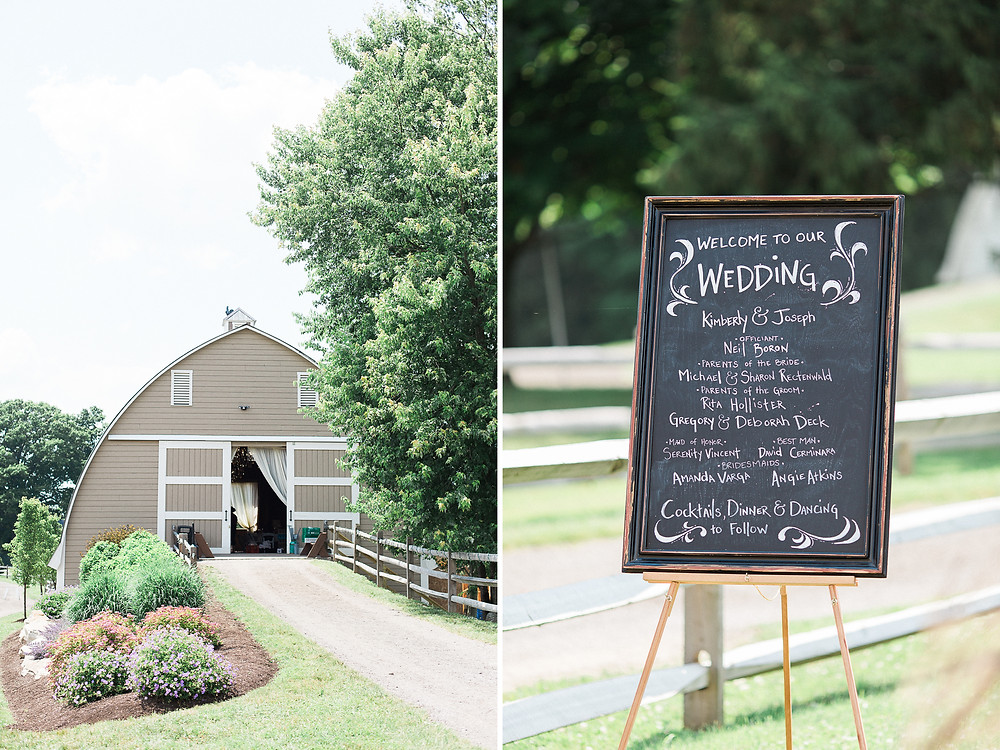 WELCOME TO OUR
WEDDING
Kimberly & Joseph
• OFFICIANT •
Neil Boron
• PARENTS OF THE BRIDE •
Michael & Sharon Rectenwald
• PARENTS OF THE GROOM •
Rita Hollister
Gregory & Deborah Deck
• MAID OF HONOR • • BEST MAN •
Serenity Vincent David Cerminara
• BRIDESMAIDS •
Amanda Varga Angie Atkins
Cocktails, Dinner & Dancing
to Follow